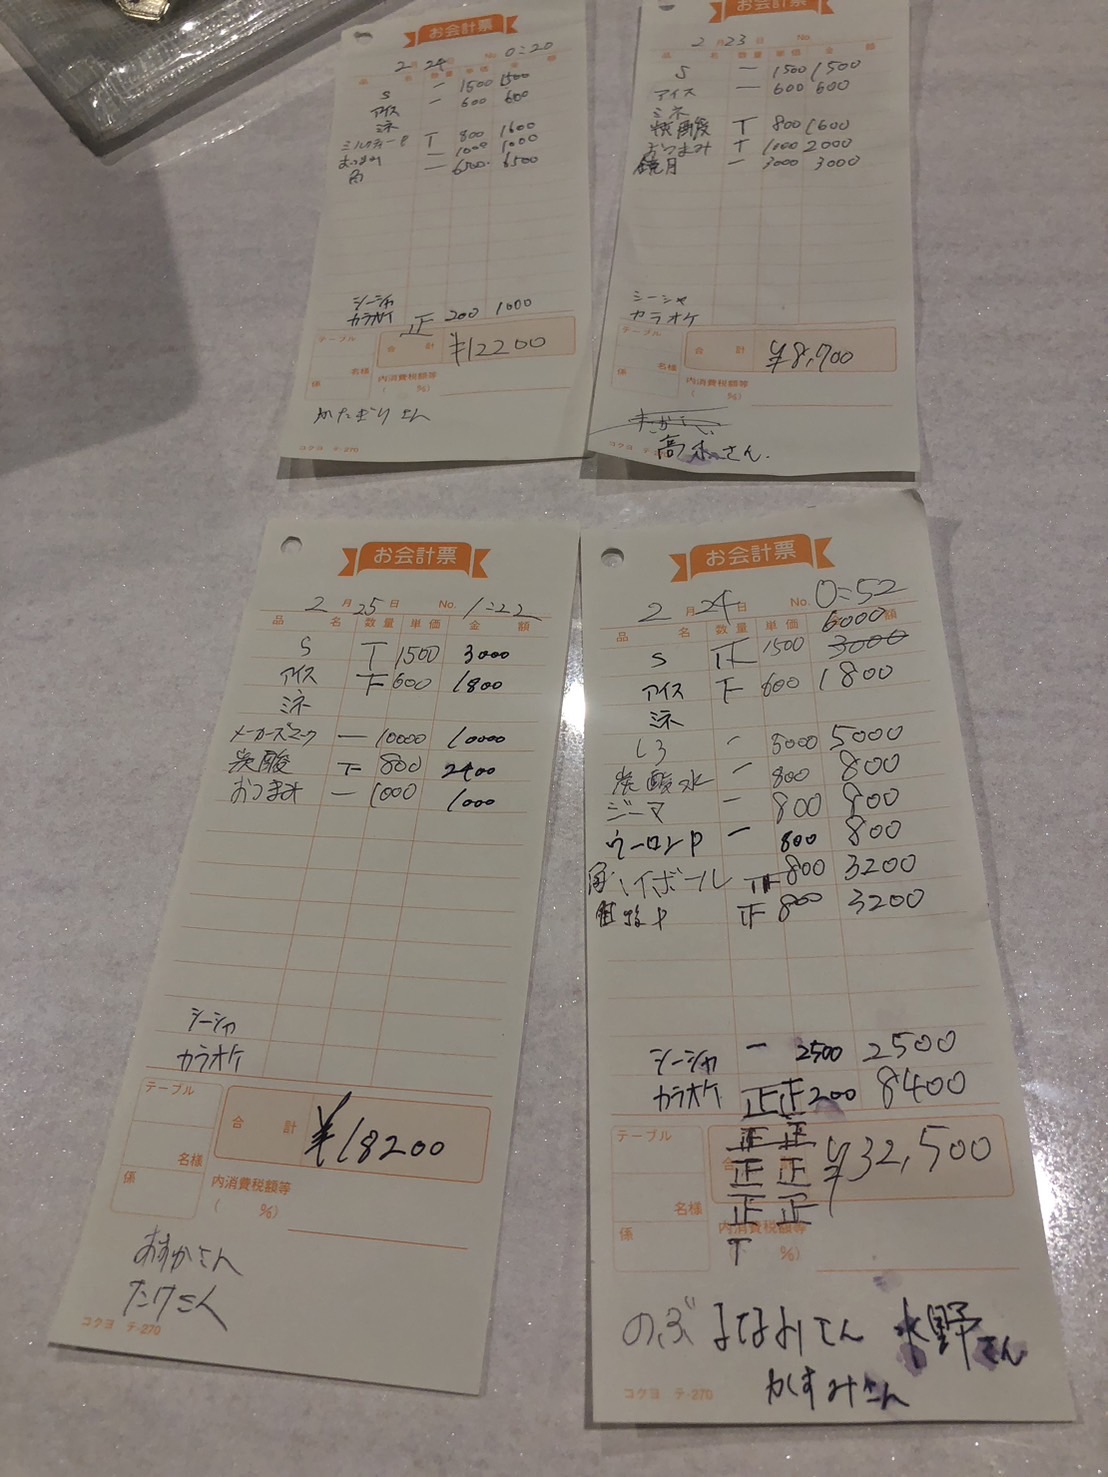 お会計票
2月24日 No. 0:20
品 名 数量 単価 金 額
S 一 1500 1500
アイス 一 600 600
ミネ
ミルクティーP T 800 1600
おつまみ 一 1000 1000
角 一 6500 6500
シーシャ
カラオケ 正 200 1000
テーブル
合 計 ¥12200
名様
係
内消費税額等
( %)
かたぎりさん
コクヨ テ-270
お会計票
2月23日 No.
名 数量 単価 金 額
S 一 1500 1500
アイス 一 600 600
ミネ
炭酸 T 800 1600
おつまみ T 1000 2000
鏡月 一 3000 3000
シーシャ
カラオケ
テーブル
合 計 ¥8,700
名様
係
内消費税額等
( %)
高木さん.
コクヨ テ-
お会計票
2月25日 No. 1:22
品 名 数量 単価 金 額
S T 1500 3000
アイス 下 600 1800
ミネ
メーカーズマーク 一 10000 10000
炭酸 下 800 2400
おつまみ 一 1000 1000
シーシャ
カラオケ
テーブル
合 計 ¥18200
名様
係
内消費税額等
( %)
あすかさん
たけさん
コクヨ テ-270
お会計票
2月24日 No. 0:52
品 名 数量 単価 金 額
6000
S 正 1500 3000
アイス 下 600 1800
ミネ
一 5000 5000
炭酸水 一 800 800
ジーマ 一 800 800
ウーロンP 一 800 800
角ハイボール 800 3200
正 800 3200
シーシャ 一 2500 2500
カラオケ 正正 200 8400
正正
正正
正正
T
テーブル
合 計 ¥32,500
名様
係
内消費税額等
%)
のぶ まなみさん 水野さん
かすみさん
コクヨ テ-270